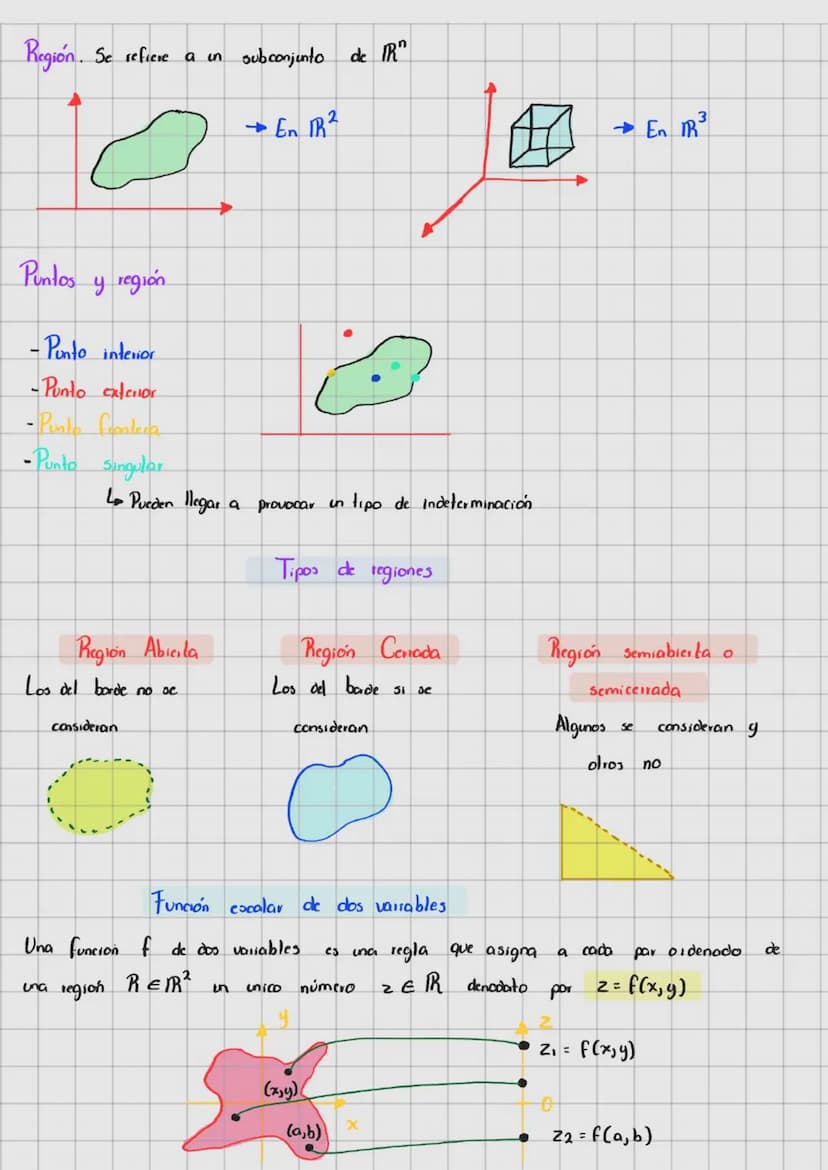 Región. Se refiere a un subconjunto de ℝⁿ
→ En ℝ²
→ En ℝ³
Puntos y región
- Punto interior
- Punto exterior
- Punto frontera
- Punto singular
↳ Pueden llegar a provocar un tipo de indeterminación
Tipos de regiones
Región Abierta
Los del borde no se
consideran
Región Cerrada
Los del borde si se
consideran
Región semiabierta o
semicerrada
Algunos se consideran y
otros no
Función escalar de dos variables
Una función f de dos variables es una regla que asigna a cada par ordenado de
una región R ∈ ℝ² un unico número z ∈ ℝ denodato por z = f(x,y)
y
z
z₁ = f(x,y)
(x,y)
0
x
(a,b)
z₂ = f(a,b)